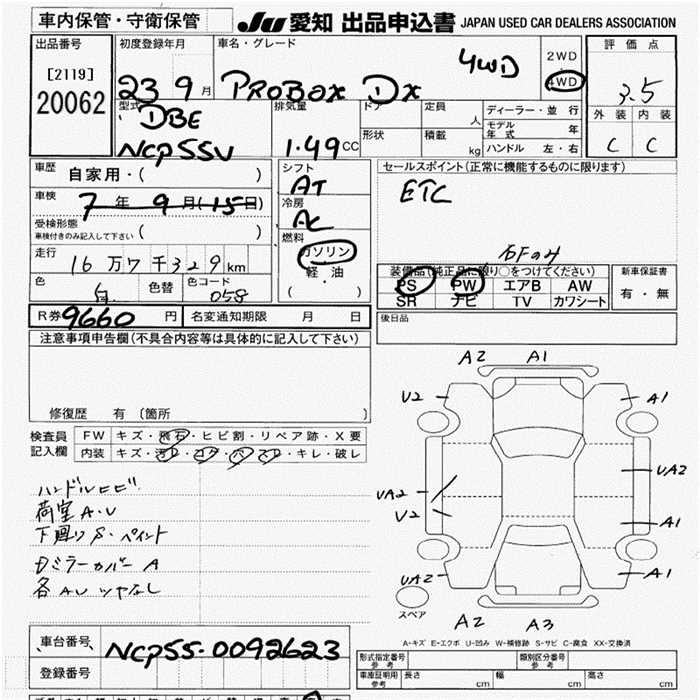 車内保管・守衛保管
JU 愛知 出品申込書 JAPAN USED CAR DEALERS ASSOCIATION
出品番号
[2119]
20062
初度登録年月
23 9 月
車名・グレード
PROBOX DX
4WD
2WD
4WD
評価点
3.5
外装 内装
C C
型式
DBE
NCP55V
排気量
1.49 CC
ドア
定員
人
形状
積載
kg
ディーラー・並行
モデル年式
年
ハンドル 左・右
車歴
自家用・( )
車検
7 年 9 月(15日)
受検形態
車検付きのみ記入して下さい ( )
走行
16 万 7 千 329 km
色
白
色替
色コード
058
シフト
AT
冷房
AC
燃料
ガソリン
軽・油
( ・ )
セールスポイント(正常に機能するものに限ります)
ETC
右Fのみ
装備品(純正品に限り○をつけてください)
PS PW エアB AW
SR ナビ TV カワシート
新車保証書
有・無
R券 9660 円
名変通知期限 月 日
後日品
注意事項申告欄(不具合内容等は具体的に記入して下さい)
修復歴 有 〔箇所 〕
検査員記入欄
FW キズ・飛石・ヒビ割・リペア跡・X要
内装 キズ・汚レ・コゲ・穴・スレ・キレ・破レ
ハンドルヒビ
荷室A・U
下廻りS・ペイント
ドミラーカバーA
各AUツヤなし
A2 A1
U2 A1
UA2
UA2
U2
A1
UA2 A1
スペア
A2 A3
A-キズ E-エクボ U-凹み W-補修跡 S-サビ C-腐食 XX-交換済
車台番号
NCP55-0092623
登録番号
形式指定番号 参考
類別区分番号 参考
車庫証明用 参考
長さ cm 幅 cm 高さ cm